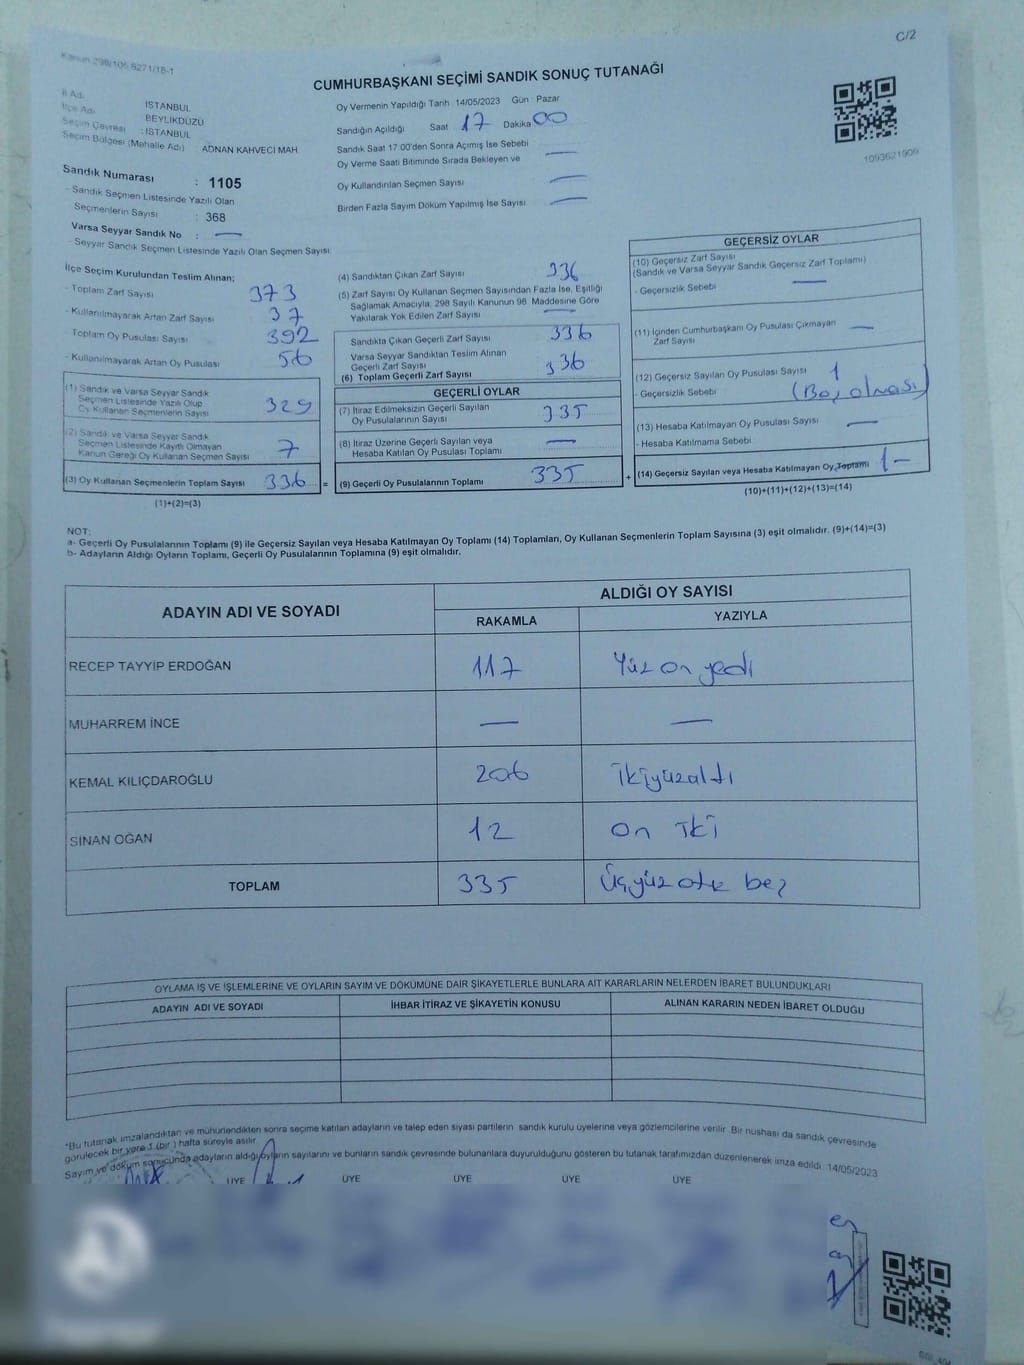 C/2
Kanun 298/105 8271/18-1
CUMHURBAŞKANI SEÇİMİ SANDIK SONUÇ TUTANAĞI
İl Adı İSTANBUL
İlçe Adı BEYLİKDÜZÜ
Seçim Çevresi : İSTANBUL
Seçim Bölgesi (Mahalle Adı) ADNAN KAHVECİ MAH.
Sandık Numarası : 1105
- Sandık Seçmen Listesinde Yazılı Olan
Seçmenlerin Sayısı : 368
Varsa Seyyar Sandık No : —
- Seyyar Sandık Seçmen Listesinde Yazılı Olan Seçmen Sayısı:
Oy Vermenin Yapıldığı Tarih 14/05/2023 Gün : Pazar
Sandığın Açıldığı Saat 17 Dakika 00
Sandık Saat 17.00'den Sonra Açımış İse Sebebi
Oy Verme Saati Bitiminde Sırada Bekleyen ve —
Oy Kullandırılan Seçmen Sayısı —
Birden Fazla Sayım Döküm Yapılmış İse Sayısı —
1093621909
İlçe Seçim Kurulundan Teslim Alınan;
- Toplam Zarf Sayısı 373
- Kullanılmayarak Artan Zarf Sayısı 37
- Toplam Oy Pusulası Sayısı 392
- Kullanılmayarak Artan Oy Pusulası 56
(1) Sandık ve Varsa Seyyar Sandık
Seçmen Listesinde Yazılı Olup
Oy Kullanan Seçmenlerin Sayısı 329
(2) Sandık ve Varsa Seyyar Sandık
Seçmen Listesinde Kayıtlı Olmayan
Kanun Gereği Oy Kullanan Seçmen Sayısı 7
(3) Oy Kullanan Seçmenlerin Toplam Sayısı 336 =
(1)+(2)=(3)
(4) Sandıktan Çıkan Zarf Sayısı 336
(5) Zarf Sayısı Oy Kullanan Seçmen Sayısından Fazla İse, Eşitliği
Sağlamak Amacıyla; 298 Sayılı Kanunun 98. Maddesine Göre
Yakılarak Yok Edilen Zarf Sayısı —
Sandıkta Çıkan Geçerli Zarf Sayısı 336
Varsa Seyyar Sandıktan Teslim Alınan
Geçerli Zarf Sayısı
(6) Toplam Geçerli Zarf Sayısı 336
GEÇERLİ OYLAR
(7) İtiraz Edilmeksizin Geçerli Sayılan
Oy Pusulalarının Sayısı 335
(8) İtiraz Üzerine Geçerli Sayılan veya
Hesaba Katılan Oy Pusulası Toplamı —
(9) Geçerli Oy Pusulalarının Toplamı 335 +
GEÇERSİZ OYLAR
(10) Geçersiz Zarf Sayısı
(Sandık ve Varsa Seyyar Sandık Geçersiz Zarf Toplamı)
- Geçersizlik Sebebi —
(11) İçinden Cumhurbaşkanı Oy Pusulası Çıkmayan
Zarf Sayısı —
(12) Geçersiz Sayılan Oy Pusulası Sayısı 1
- Geçersizlik Sebebi (Boş olması)
(13) Hesaba Katılmayan Oy Pusulası Sayısı —
- Hesaba Katılmama Sebebi
(14) Geçersiz Sayılan veya Hesaba Katılmayan Oy Toplamı 1 —
(10)+(11)+(12)+(13)=(14)
NOT:
a- Geçerli Oy Pusulalarının Toplamı (9) ile Geçersiz Sayılan veya Hesaba Katılmayan Oy Toplamı (14) Toplamları, Oy Kullanan Seçmenlerin Toplam Sayısına (3) eşit olmalıdır. (9)+(14)=(3)
b- Adayların Aldığı Oyların Toplamı, Geçerli Oy Pusulalarının Toplamına (9) eşit olmalıdır.
ADAYIN ADI VE SOYADI ALDIĞI OY SAYISI
RAKAMLA YAZIYLA
RECEP TAYYİP ERDOĞAN 117 Yüz on yedi
MUHARREM İNCE — —
KEMAL KILIÇDAROĞLU 206 ikiyüzaltı
SİNAN OĞAN 12 on iki
TOPLAM 335 Üçyüz otuz beş
OYLAMA İŞ VE İŞLEMLERİNE VE OYLARIN SAYIM VE DÖKÜMÜNE DAİR ŞİKAYETLERLE BUNLARA AİT KARARLARIN NELERDEN İBARET BULUNDUKLARI
ADAYIN ADI VE SOYADI İHBAR İTİRAZ VE ŞİKAYETİN KONUSU ALINAN KARARIN NEDEN İBARET OLDUĞU
*Bu tutanak imzalandıktan ve mühürlendikten sonra seçime katılan adayların ve talep eden siyasi partilerin sandık kurulu üyelerine veya gözlemcilerine verilir. Bir nüshası da sandık çevresinde
görülecek bir yere 1 (bir ) hafta süreyle asılır.
Sayım ve döküm sonucunda adayların aldığı oyların sayılarını ve bunların sandık çevresinde bulunanlara duyurulduğunu gösteren bu tutanak tarafımızdan düzenlenerek imza edildi. 14/05/2023
ÜYE ÜYE ÜYE ÜYE ÜYE